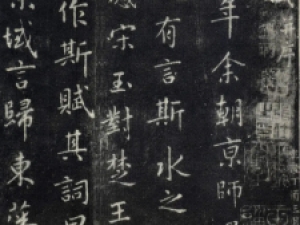 年余朝京師
有言斯水之
宋玉對楚王
作斯賦其詞曰
域言歸東藩